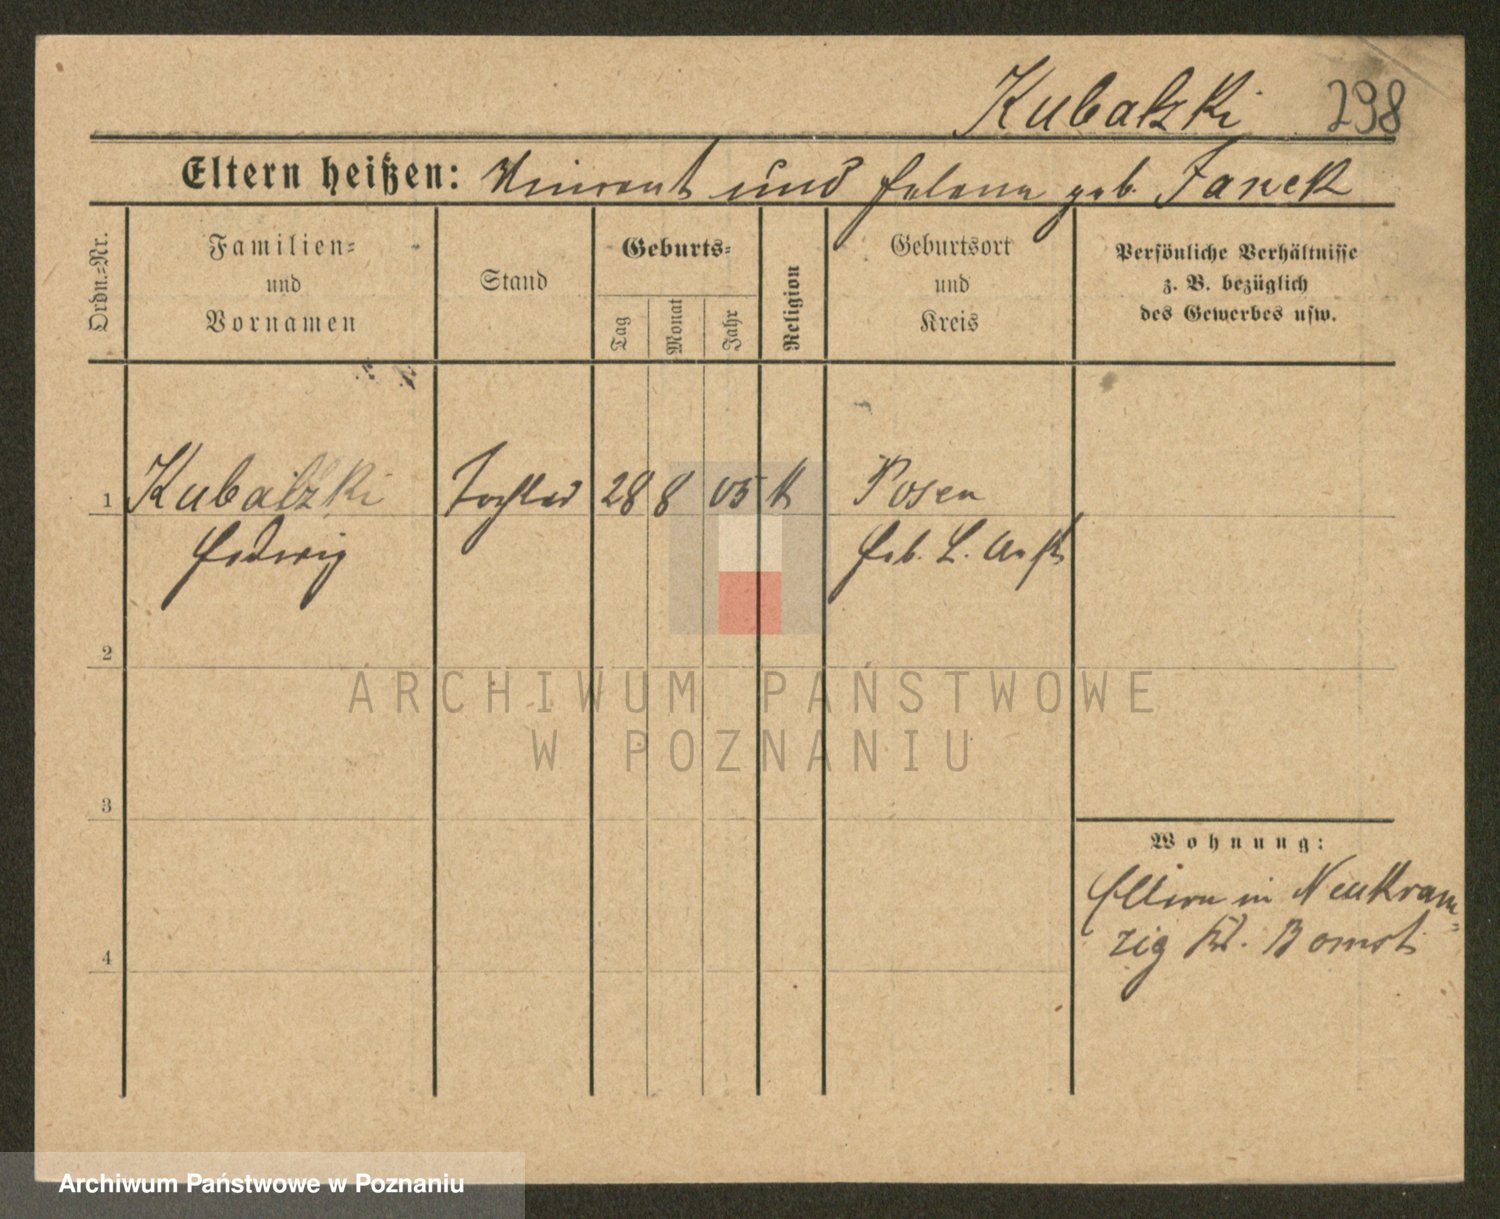 Kubalzki 298
Eltern heißen: Vincent und Helena geb. Janek
Ordn.=Nr.
Familien=
und
Vornamen
Stand
Geburts=
Tag
Monat
Jahr
Religion
Geburtsort
und
Kreis
Persönliche Verhältnisse
z. B. bezüglich
des Gewerbes usw.
1 Kubalzki Tochter 28 8 05 k Posen
Hedwig Heb. L. Anst.
2
3
4
Wohnung:
Eltern in Neukram=
zig Kr. Bomst
ARCHIWUM PAŃSTWOWE
W POZNANIU
Archiwum Państwowe w Poznaniu